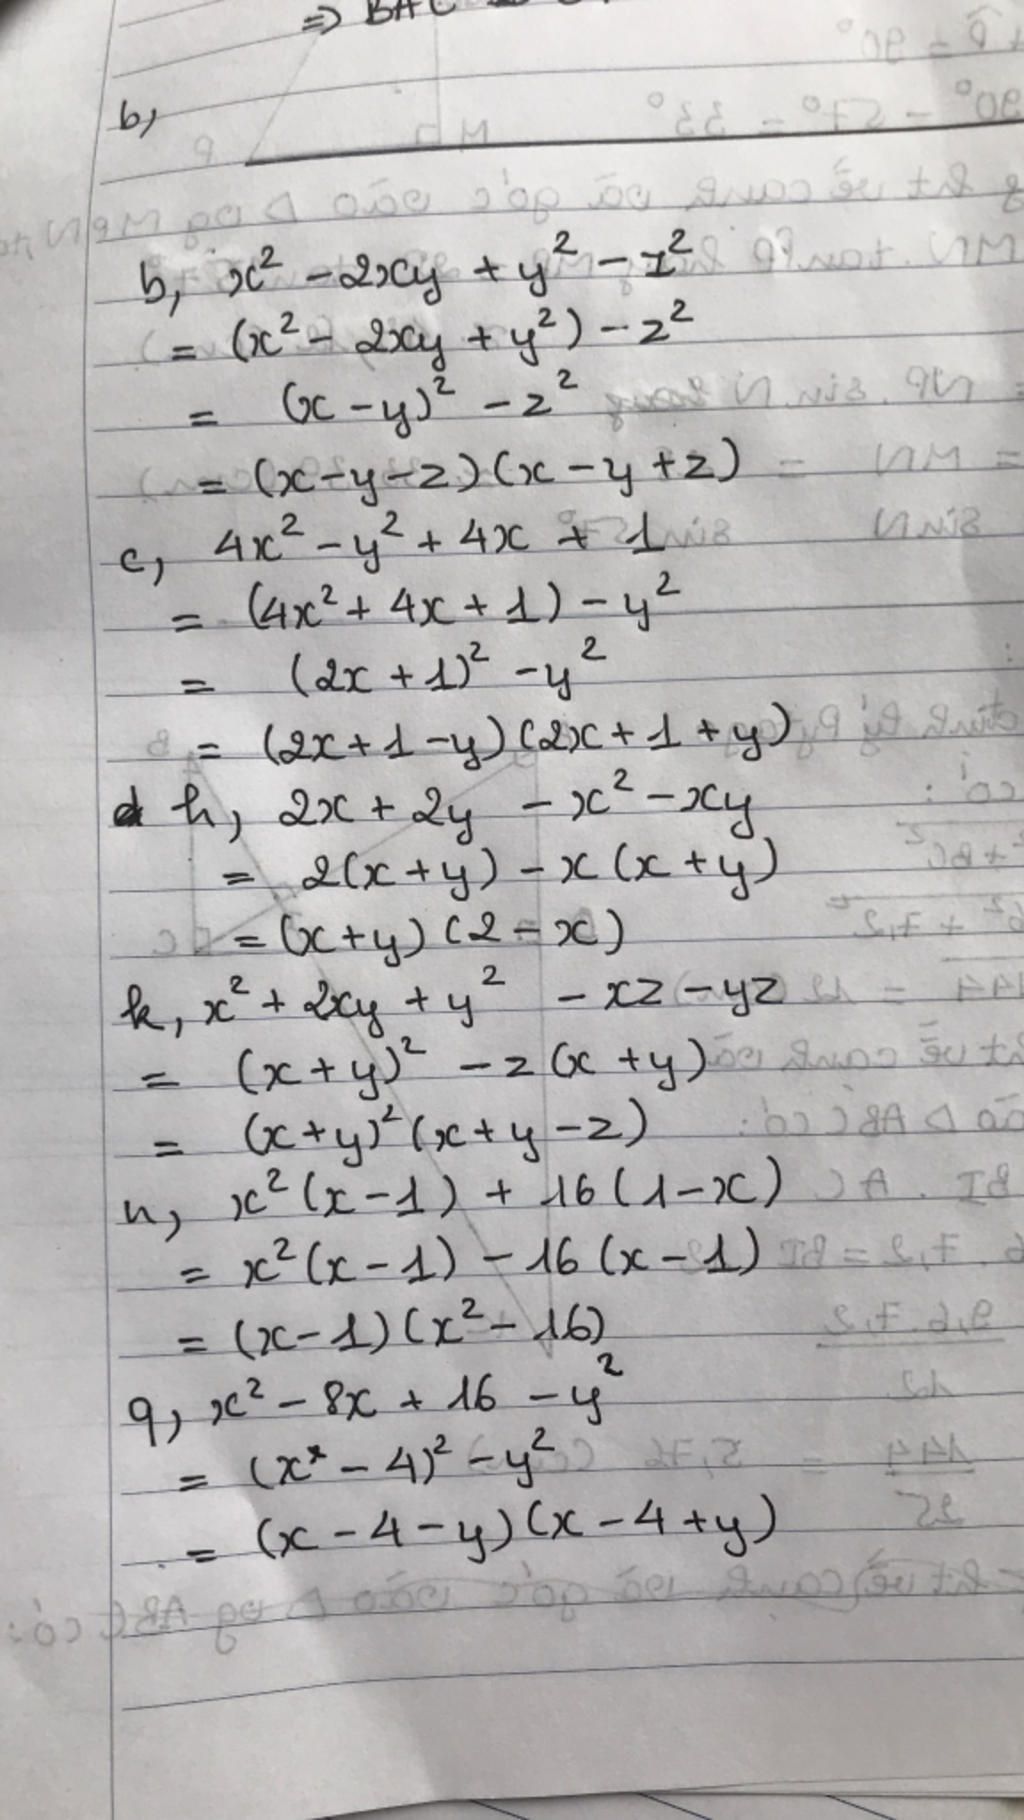 ⇒ BAC
b,
b, x² - 2xy + y² - z²
= (x² - 2xy + y²) - z²
= (x - y)² - z²
= (x - y - z)(x - y + z)
c, 4x² - y² + 4x + 1
= (4x² + 4x + 1) - y²
= (2x + 1)² - y²
= (2x + 1 - y)(2x + 1 + y)
h, 2x + 2y - x² - xy
= 2(x + y) - x(x + y)
= (x + y)(2 - x)
k, x² + 2xy + y² - xz - yz
= (x + y)² - z(x + y)
= (x + y)²(x + y - z)
n, x²(x - 1) + 16(1 - x)
= x²(x - 1) - 16(x - 1)
= (x - 1)(x² - 16)
q, x² - 8x + 16 - y²
= (x - 4)² - y²
= (x - 4 - y)(x - 4 + y)